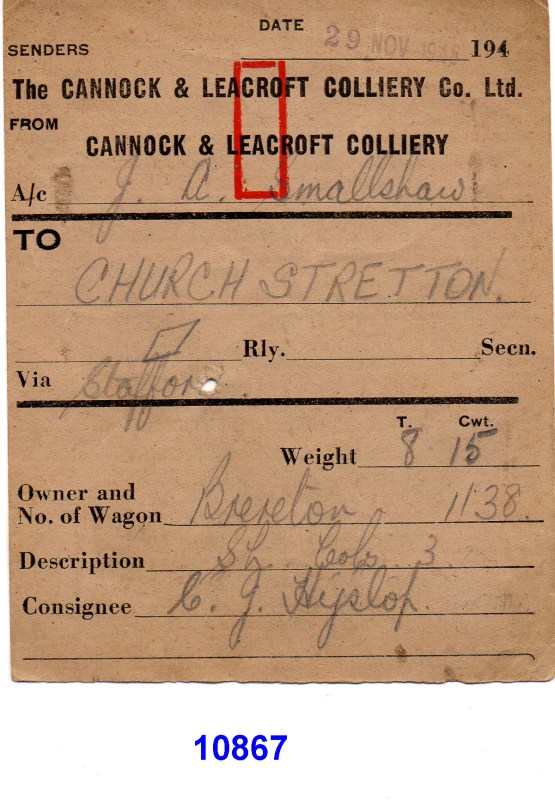 DATE
SENDERS 29 NOV 194
The CANNOCK & LEACROFT COLLIERY Co. Ltd.
FROM
CANNOCK & LEACROFT COLLIERY
A/c J. A. Smallshaw
TO
CHURCH STRETTON.
Rly. Secn.
Via Stafford
T. Cwt.
Weight 8 15
Owner and
No. of Wagon Brereton 1138
Description 3
Consignee C. J. Hyslop.
10867